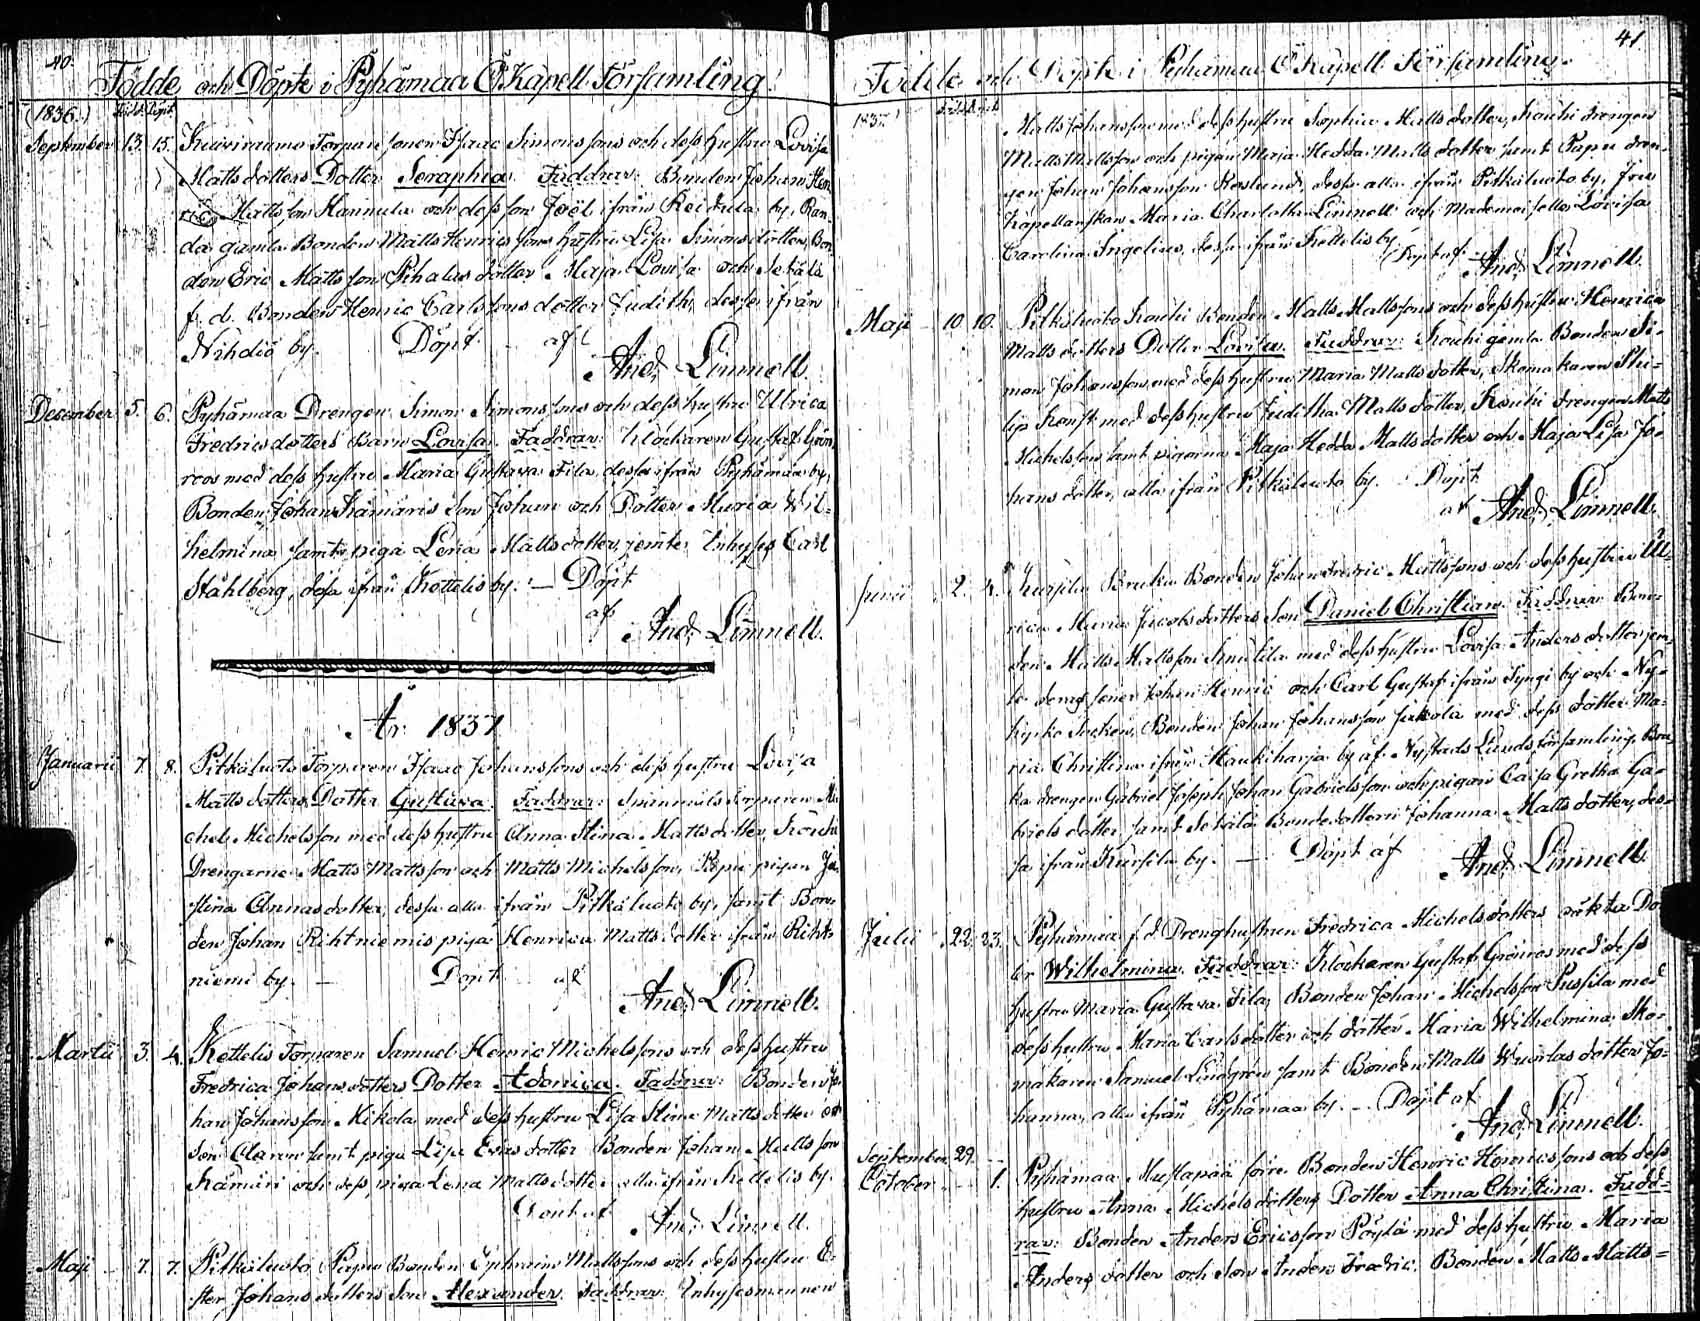 40.
Födde och Döpte i Pyhämaa Ö Kapell Församling.
(1836.) Född. Döpt.
September 13. 15. Torparesonen Isaac Simonssons och dess hustru Lovisa
Mattsdotters Dotter Seraphia. Faddrar: Bonden Johan Hen
ric Mattsson Hannula och dess son Joël ifrån Reidula by, Ran
da gamla Bonden Matts Henricssons hustru Lisa Simonsdotter, Bon
den Eric Mattsson Pihalas dotter Maja Lovisa och Setälä
f. d. Bonden Henric Carlssons dotter Judith, desse ifrån
Nihdiö by. Döpt af
And. Limnell.
December 5. 6. Pyhämaa Drengen Simon Simonssons och dess hustru Ulrica
Fredricsdotters Barn Lovisa. Faddrar: Klockaren Gustaf Grön
roos med dess hustru Maria Gustava Fila, desse ifrån Pyhämaa by,
Bonden Johan Kämäris son Johan och Dotter Maria Wil=
helmina samt piga Lena Mattsdotter, jemte Inhyses Carl
Ståhlberg, desse ifrån Kettelis by. — Döpt
af
And. Limnell.
År 1837
Januarii 7. 8. Pitkäluoto Torparen Isaac Johanssons och dess hustru Lovisa
Mattsdotters Dotter Gustava. Faddrar: Torparen Mi
chel Michelsson med dess hustru Anna Stina Mattsdotter, Kouhi
Drengarne Matts Mattsson och Matts Michelsson, Papu pigan Ju
stina Annasdotter, desse alla ifrån Pitkäluoto by, samt Bon
den Johan Rihtniemis piga Henrica Mattsdotter ifrån Riht=
niemi by. — Döpt af
And. Limnell.
Martii 3. 4. Kettelis Torparen Samuel Henric Michelssons och dess hustru
Fredrica Johansdotters Dotter Adonica. Faddrar: Bonden Jo
han Johansson Mikola med dess hustru Lisa Stina Mattsdotter och
son Claren samt piga Lisa Ersdotter Bonden Johan Mattsson
Kämäri och dess piga Lena Mattsdotter alla ifrån Kettelis by.
Döpt af And. Limnell.
Maji 7. 7. Pitkäluoto Papu Bonden Ephraim Mattssons och dess hustru E=
ster Johansdotters Son Alexander. Faddrar: Inhysesmannen
41
Födde och Döpte i Pyhämaa Ö Kapell Församling.
1837. Född. Döpt.
Matts Johansson med dess hustru Sophia Mattsdotter, Kouhi drengen
Matts Mattsson och pigan Maja Hedda Mattsdotter samt Papu dren=
gen Johan Johansson Roslund, desse alla ifrån Pitkäluoto by, Fru
Kapellanskan Maria Charlotta Limnell och Mademoiselle Lovisa
Carolina Ingelius, desse ifrån Kettelis by. Döpt af
And. Limnell.
Maji 10. 10. Pitkäluoto Kouhi Bonden Matts Mattssons och dess hustru Henrica
Mattsdotters Dotter Lovisa. Faddrar: Kouhi gamla Bonden Si=
mon Johansson med dess hustru Maria Mattsdotter, Skomakaren Phi=
lip med dess hustru Juditha Mattsdotter, Kouhi drengen Matts
Michelsson samt pigorna Maja Hedda Mattsdotter och Maja Lisa Jo=
hansdotter, alla ifrån Pitkäluoto by. Döpt
af And. Limnell.
Junii 2. 4. Kursila Bruka Bonden Johan Fredric Mattssons och dess hustru Ul=
rica Maria Jacobsdotters Son Daniel Christian. Faddrar: Bon=
den Matts Mattsson med dess hustru Lovisa Andersdotter jem=
te deras söner Johan Henric och Carl Gustaf ifrån Tyngi by och Ny=
kyrko Socken, Bonden Johan Johansson Jaakola med dess dotter Ma=
ria Christina ifrån Haukiharja by af Nystads Lands församling, Bru
ka drengen Gabriel Joseph Johan Gabrielsson och pigan Caisa Gretha Ga=
brielsdotter samt Setälä Bondedottern Johanna Mattsdotter, des=
se ifrån Kursila by. — Döpt af
And. Limnell.
Julii 22. 23. Pyhämaa f. d. Drenghustrun Fredrica Michelsdotters oäkta Dot
ter Wilhelmina. Faddrar: Klockaren Gustaf Grönroos med dess
hustru Maria Gustava Fila, Bonden Johan Michelsson Pusfila med
dess hustru Maria Carlsdotter och dotter Maria Wilhelmina, Sko=
makaren Samuel Lindgren samt Bonden Matts Wuorlas dotter Jo=
hanna, alla ifrån Pyhämaa by. — Döpt af
And. Limnell.
September 29.
October 1. Pyhämaa Mustapää före Bonden Henric Henricssons och dess
hustru Anna Michelsdotters Dotter Anna Christina. Fadd=
rar: Bonden Anders Ericsson Pöylä med dess hustru Maria
Andersdotter och son Anders Fredric, Bonden Matts Matts=